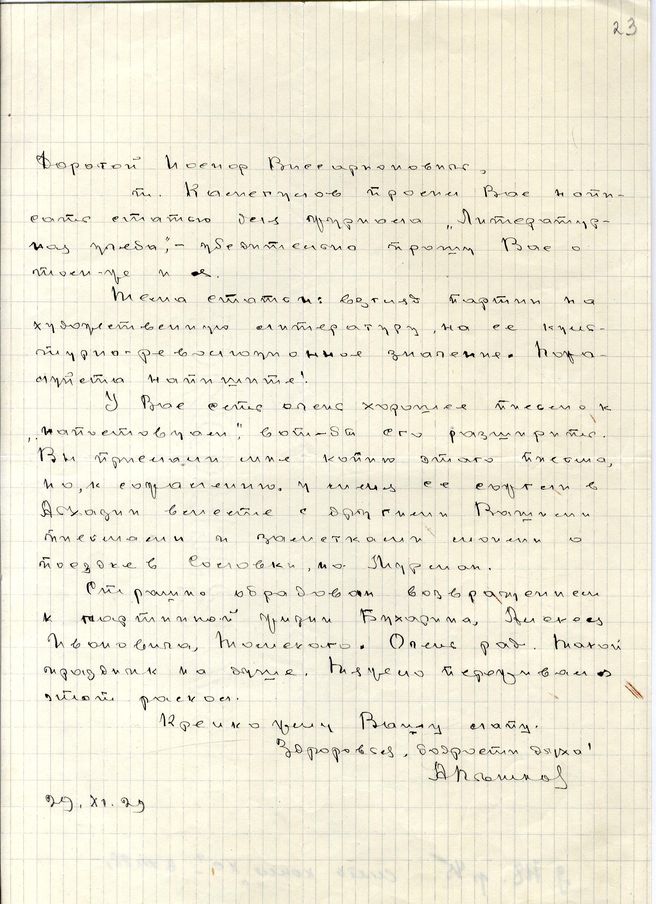 23
Дорогой Иосиф Виссарионович,
т. Камегулов просил Вас напи-
сать статью для журнала „Литератур-
ная учеба“, – убедительно прошу Вас о
том-же и я.
Тема статьи: взгляд партии на
художественную литературу, на ее куль-
турно-революционное значение. Пожа-
луйста напишите!
У Вас есть очень хорошее письмо к
„напостовцам“, вот-бы его расширить.
Вы присылали мне копию этого письма,
но, к сожалению, у меня ее сожгли в
вместе с другими Вашими
письмами и заметками моими о
поездке в Соловки, на Мурман.
Страшно обрадован возвращением
к партийной жизни Бухарина, Алексея
Ивановича, Томского. Очень рад. Такой
праздник на душе. Тяжело переживал я
этот раскол.
Крепко жму Вашу лапу.
Здоровья, бодрости духа!
А Пешков
29. XI. 29